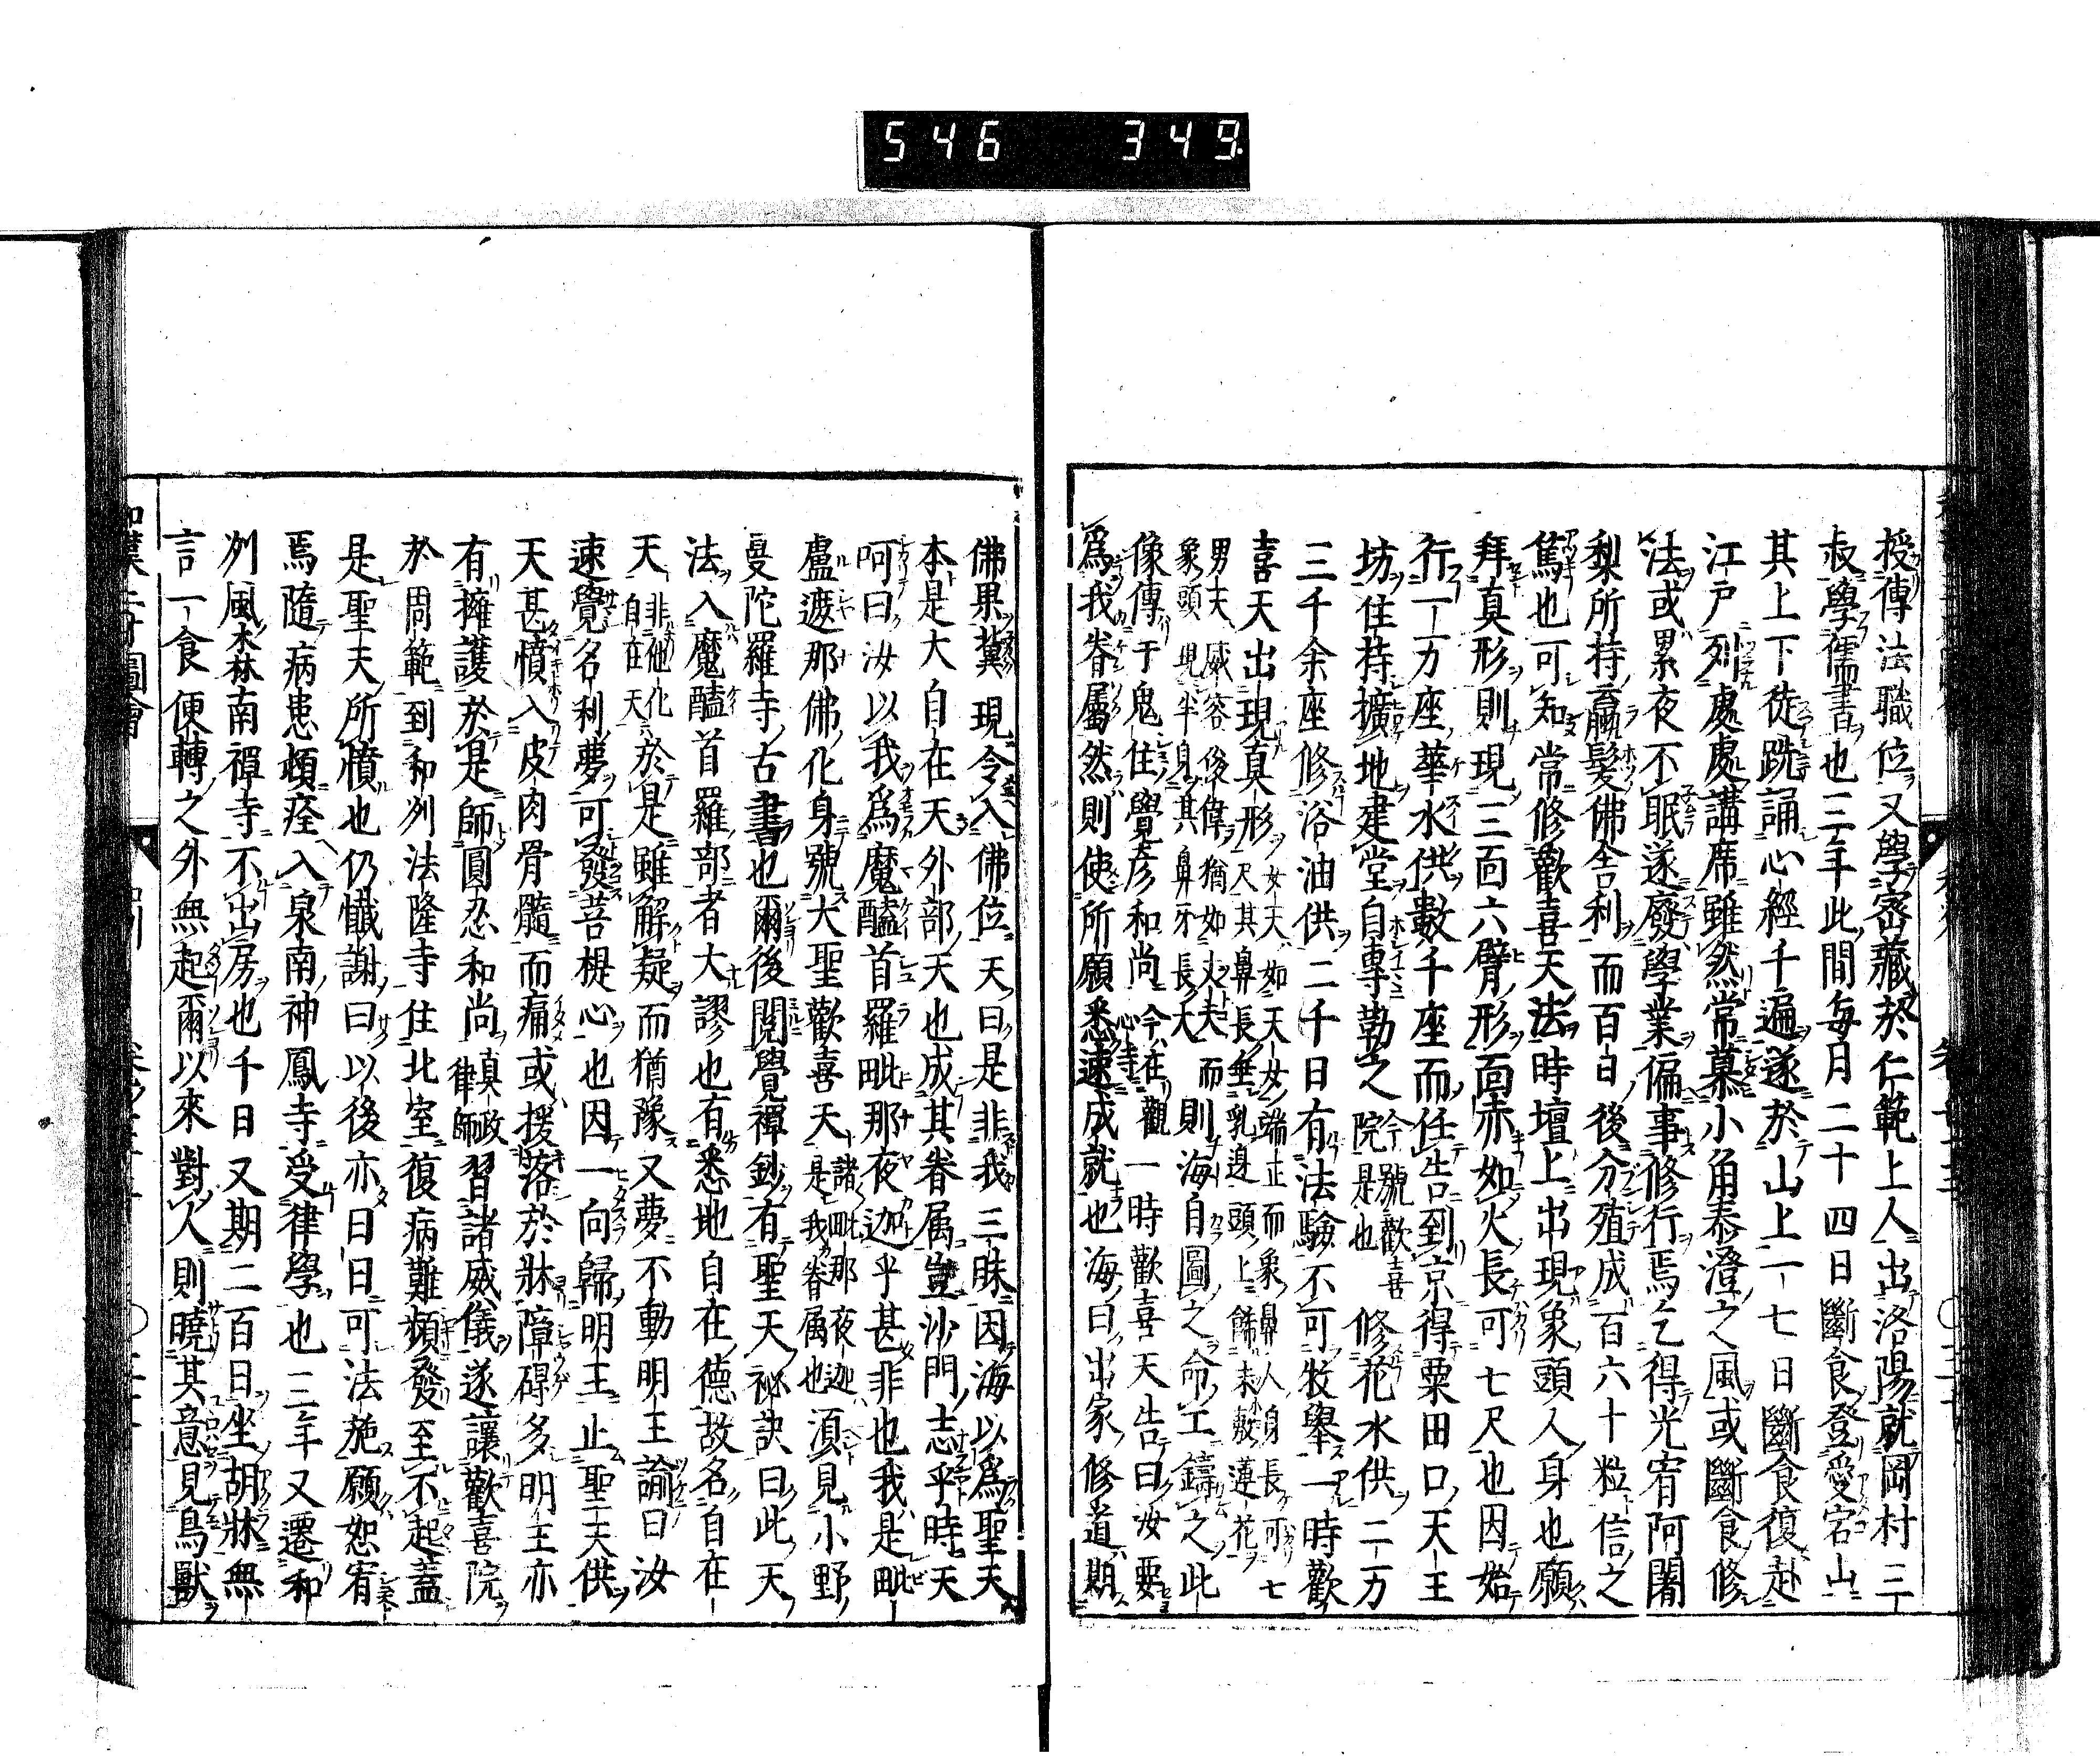 546 349
授傳法職位又學密藏於仁範上人出洛陽就岡村三
叔學儒書也三年此間每月二十四日斷食登愛宕山
其上下徒跣誦心經千遍遂於山上一七日斷食復赴
江戸列處處講席雖然常慕小角泰澄之風或斷食修
法或累夜不眠遂廢學業偏事修行焉乞得光宥阿闍
梨所持螺髮佛舍利而百日後分殖成百六十粒信之
篤也可知常修歡喜天法時壇上出現象頭人身也願
拜真形則現三面六臂形面赤如火長可七尺也因始
行一万座華水供數千座而任告到京得粟田口天王
坊住持擴地建堂自專勤之今號歡喜院是也修花水供二万
三千余座修浴油供二千日有法驗不可牧舉一時歡
喜天出現真形女天如天女端正而象鼻人身長可七尺其鼻長垂乳邊頭上餝未敷蓮花
男夫威容俊偉猶如丈夫而象頭現半身其鼻牙長大則海自圖之命工鑄之此
像傳于鬼住覺彦和尚今在觀心寺一時歡喜天告曰汝要
爲我眷屬然則使所願悉速成就也海曰出家修道期
佛果冀現令入佛位天曰是非我三昧因海以爲聖天
本是大自在天外部天也成其眷属豈沙門志乎時天
呵曰汝以我爲魔醯首羅毗那夜迦乎甚非也我是毗
盧遮那佛化身號大聖歡喜天諸毗那夜迦是我眷属也須見小野
曼陀羅寺古書也爾後閲覺禪鈔有聖天祕訣曰此天
法入魔醯首羅部者大謬也有悉地自在德故名自在
天非他化自在天於是雖解疑而猶豫又夢不動明王諭曰汝
速覺名利夢可發菩提心也因一向歸明王止聖天供
天甚憤入皮肉骨髓而痛或援落於牀障碍多明王亦
有擁護於是師圓忍和尚真政律師習諸威儀遂讓歡喜院
於周範到和州法隆寺住北室復病難頻發至不起蓋
是聖天所憤也仍懺謝曰以後亦日日可法施願恕宥
焉隨病患頓痊入泉南神鳳寺受律學也二年又遷和
州風森南禪寺不出房也千日又期二百日坐胡牀無
言一食便轉之外無起爾以來對人則曉其意見鳥獸